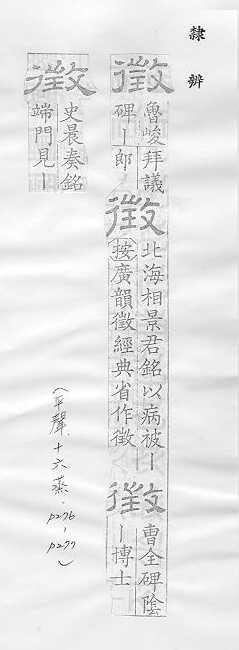 隸辨
徵 魯峻碑｜郎 拜議
徵 北海相景君銘以病被｜
按廣韻徵經典省作徵
徵 曹全碑陰
｜博士
徵 史晨奏銘
端門見｜
（平聲.十六蒸.p276-p277）